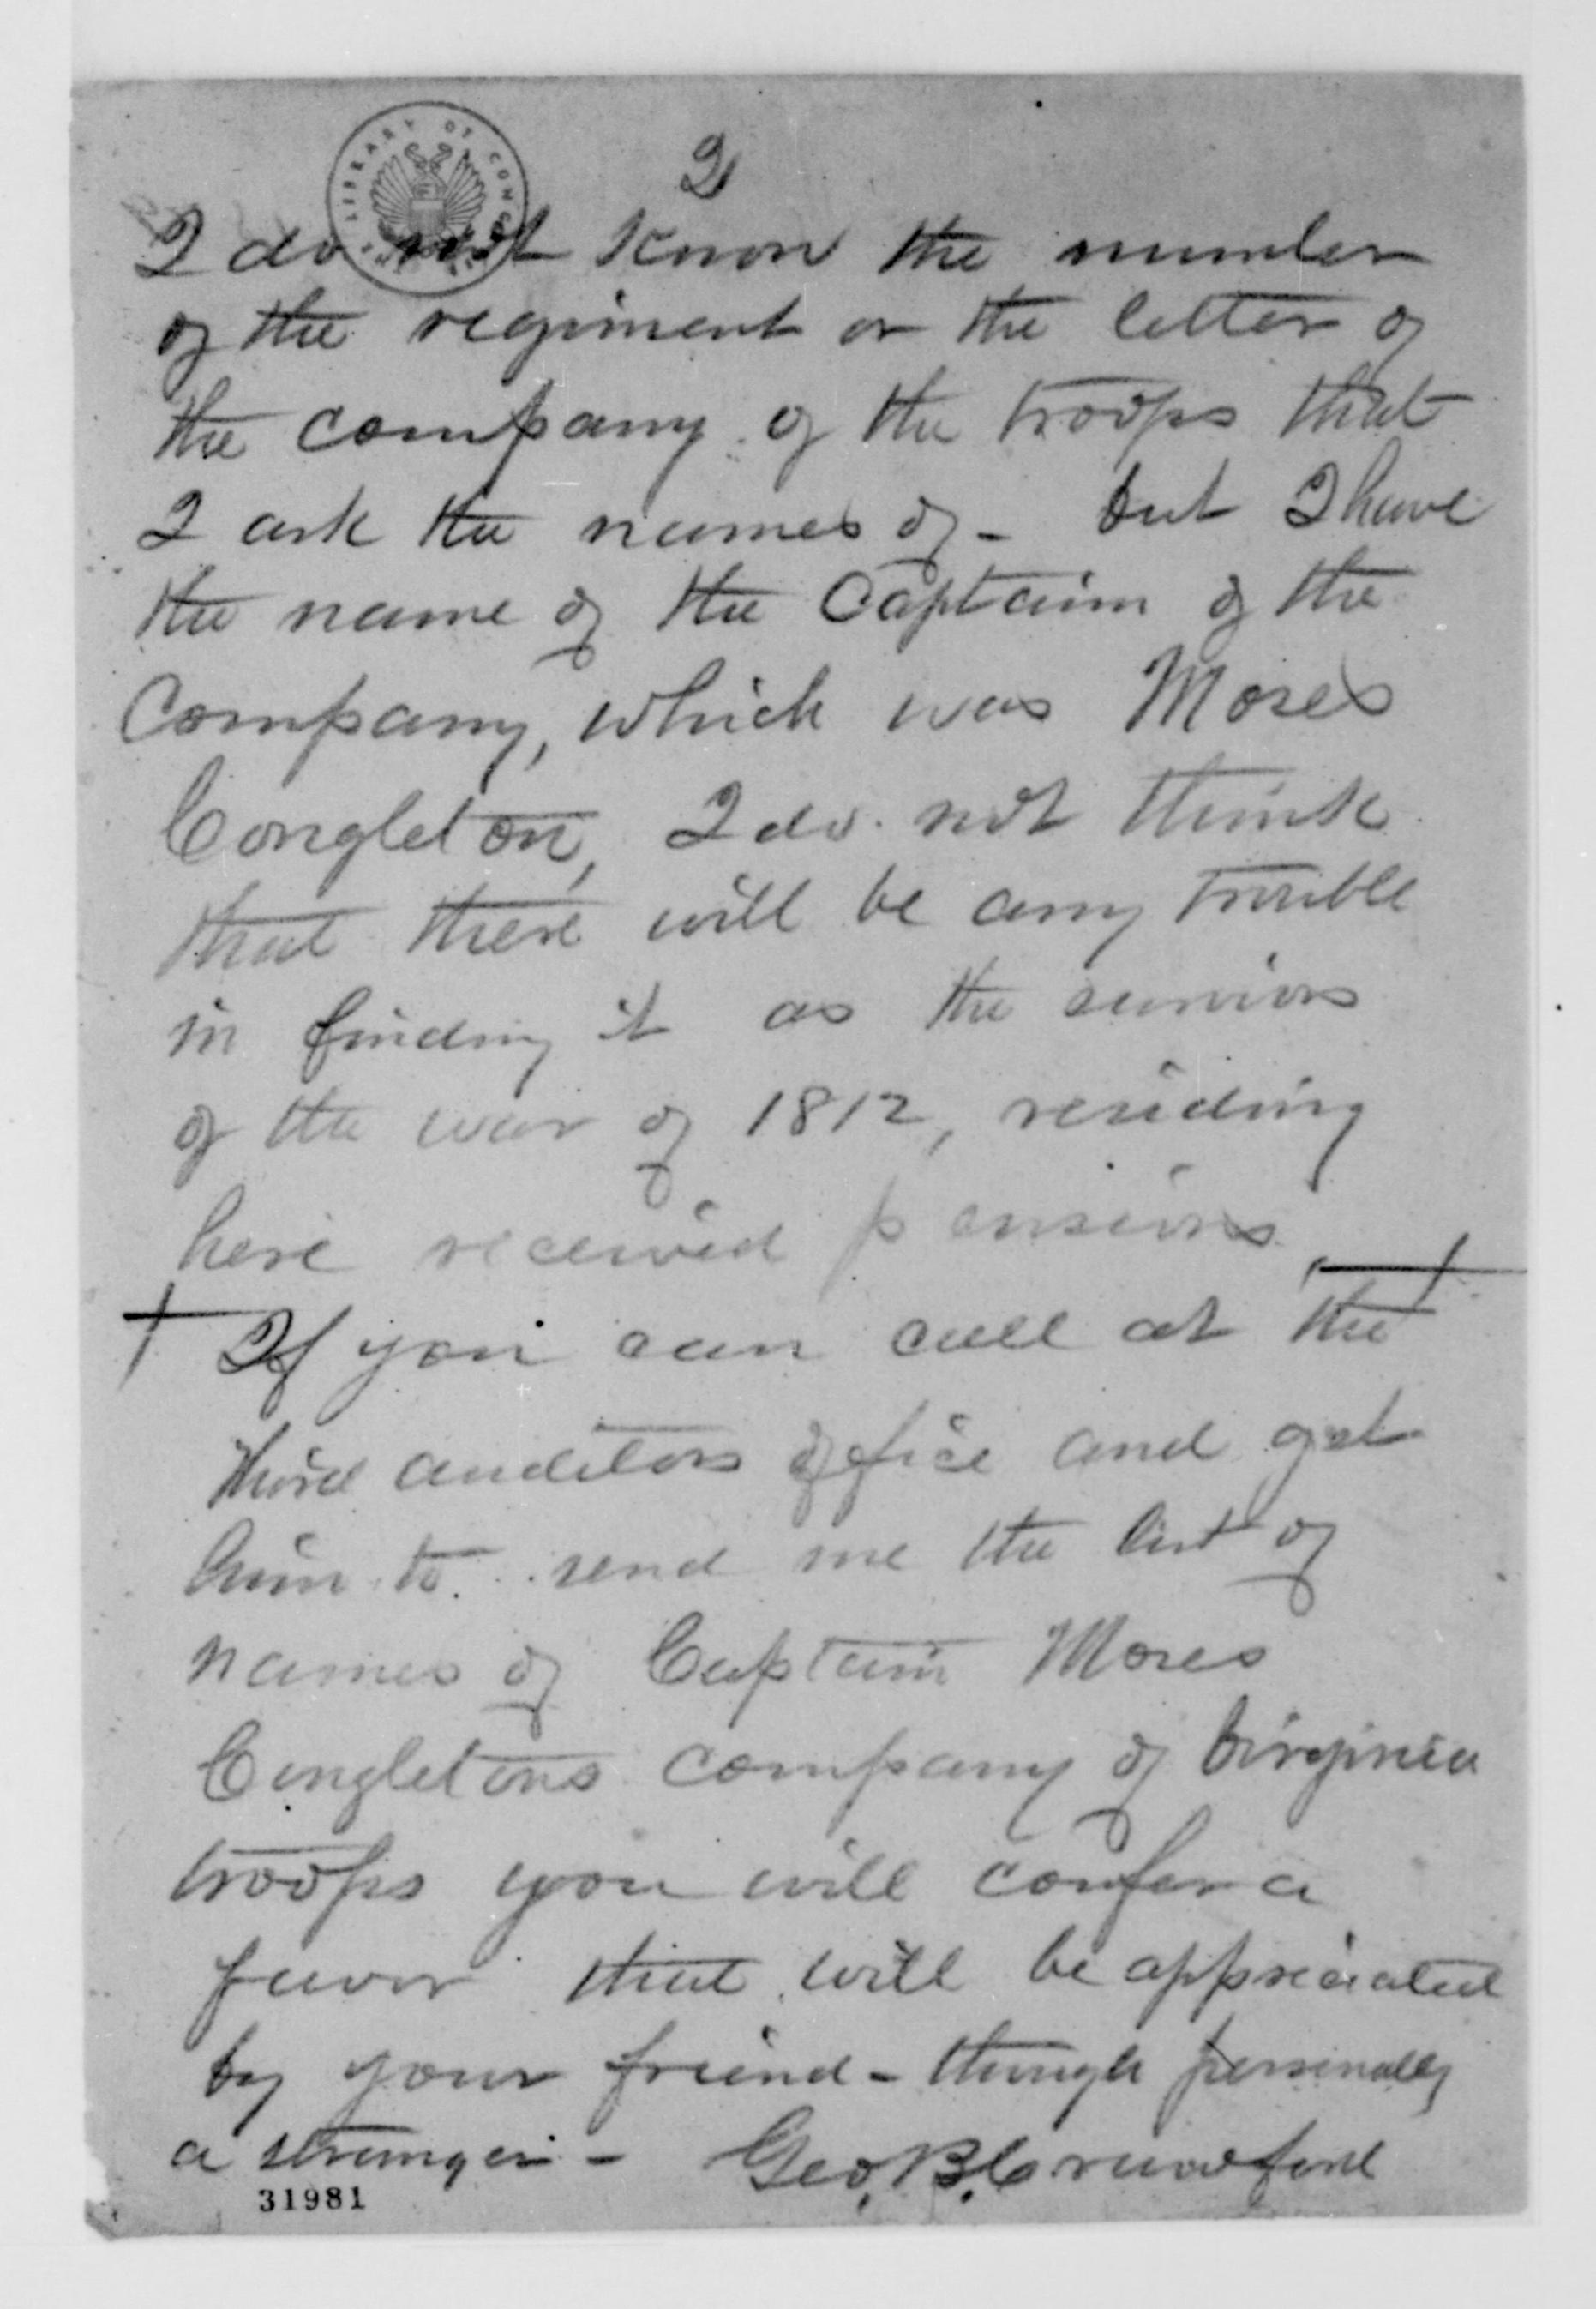 2
I do not know the number
of the regiment or the letter of
the company of the troops that
I ask the names of - but I have
the name of the Captain of the
Company, which was Moses
Congleton, I do not think
that there will be any trouble
in finding it as the survivors
of the war of 1812, residing
here received pensions
If you can call at the
third auditors office and get
him to send me the list of
names of Captain Moses
Congletons company of Virginia
troops you will confer a
favor that will be appreciated
by your friend - though personally
a stranger - Geo, B, Crawford
31981
LIBRARY OF CONG